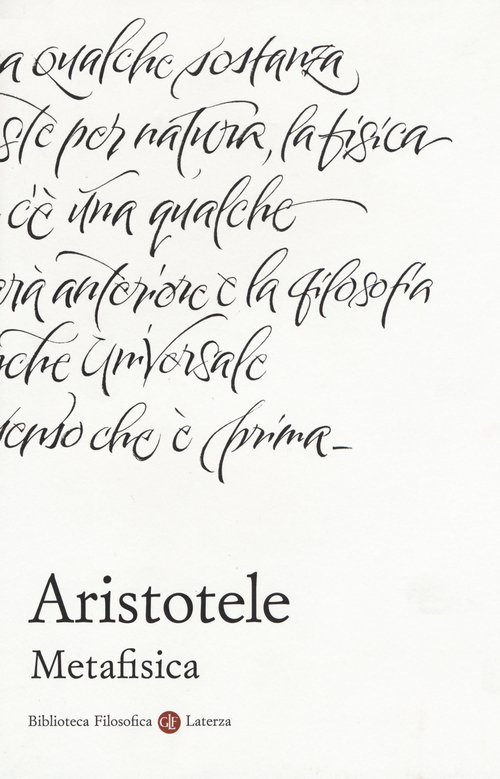 a qualche sostanza
ste per natura, la fisica
c'è una qualche
rà anteriore e la filosofia
nche universale
senso che è prima_
Aristotele
Metafisica
Biblioteca Filosofica GLF Laterza